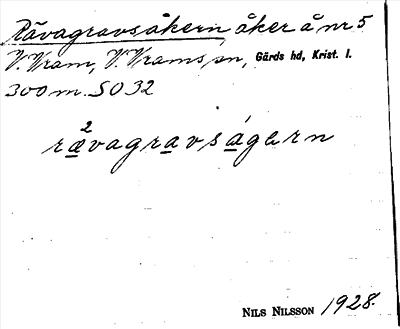 Rävagravsåkern, åker å nr 5
V. Vram, V. Vrams sn, Gärds hd, Krist. l.
300 m. SO 32
2
rävagravságern
NILS NILSSON 1928.